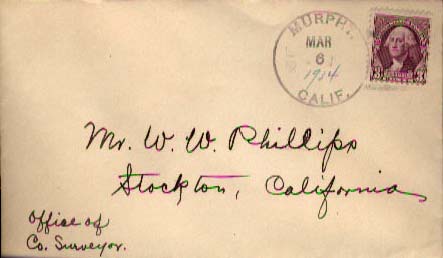 MURPHY
MAR
6
1934
CALIF.
3 3
Mr. W. W. Phillips
Stockton, California
Office of
Co. Surveyor.